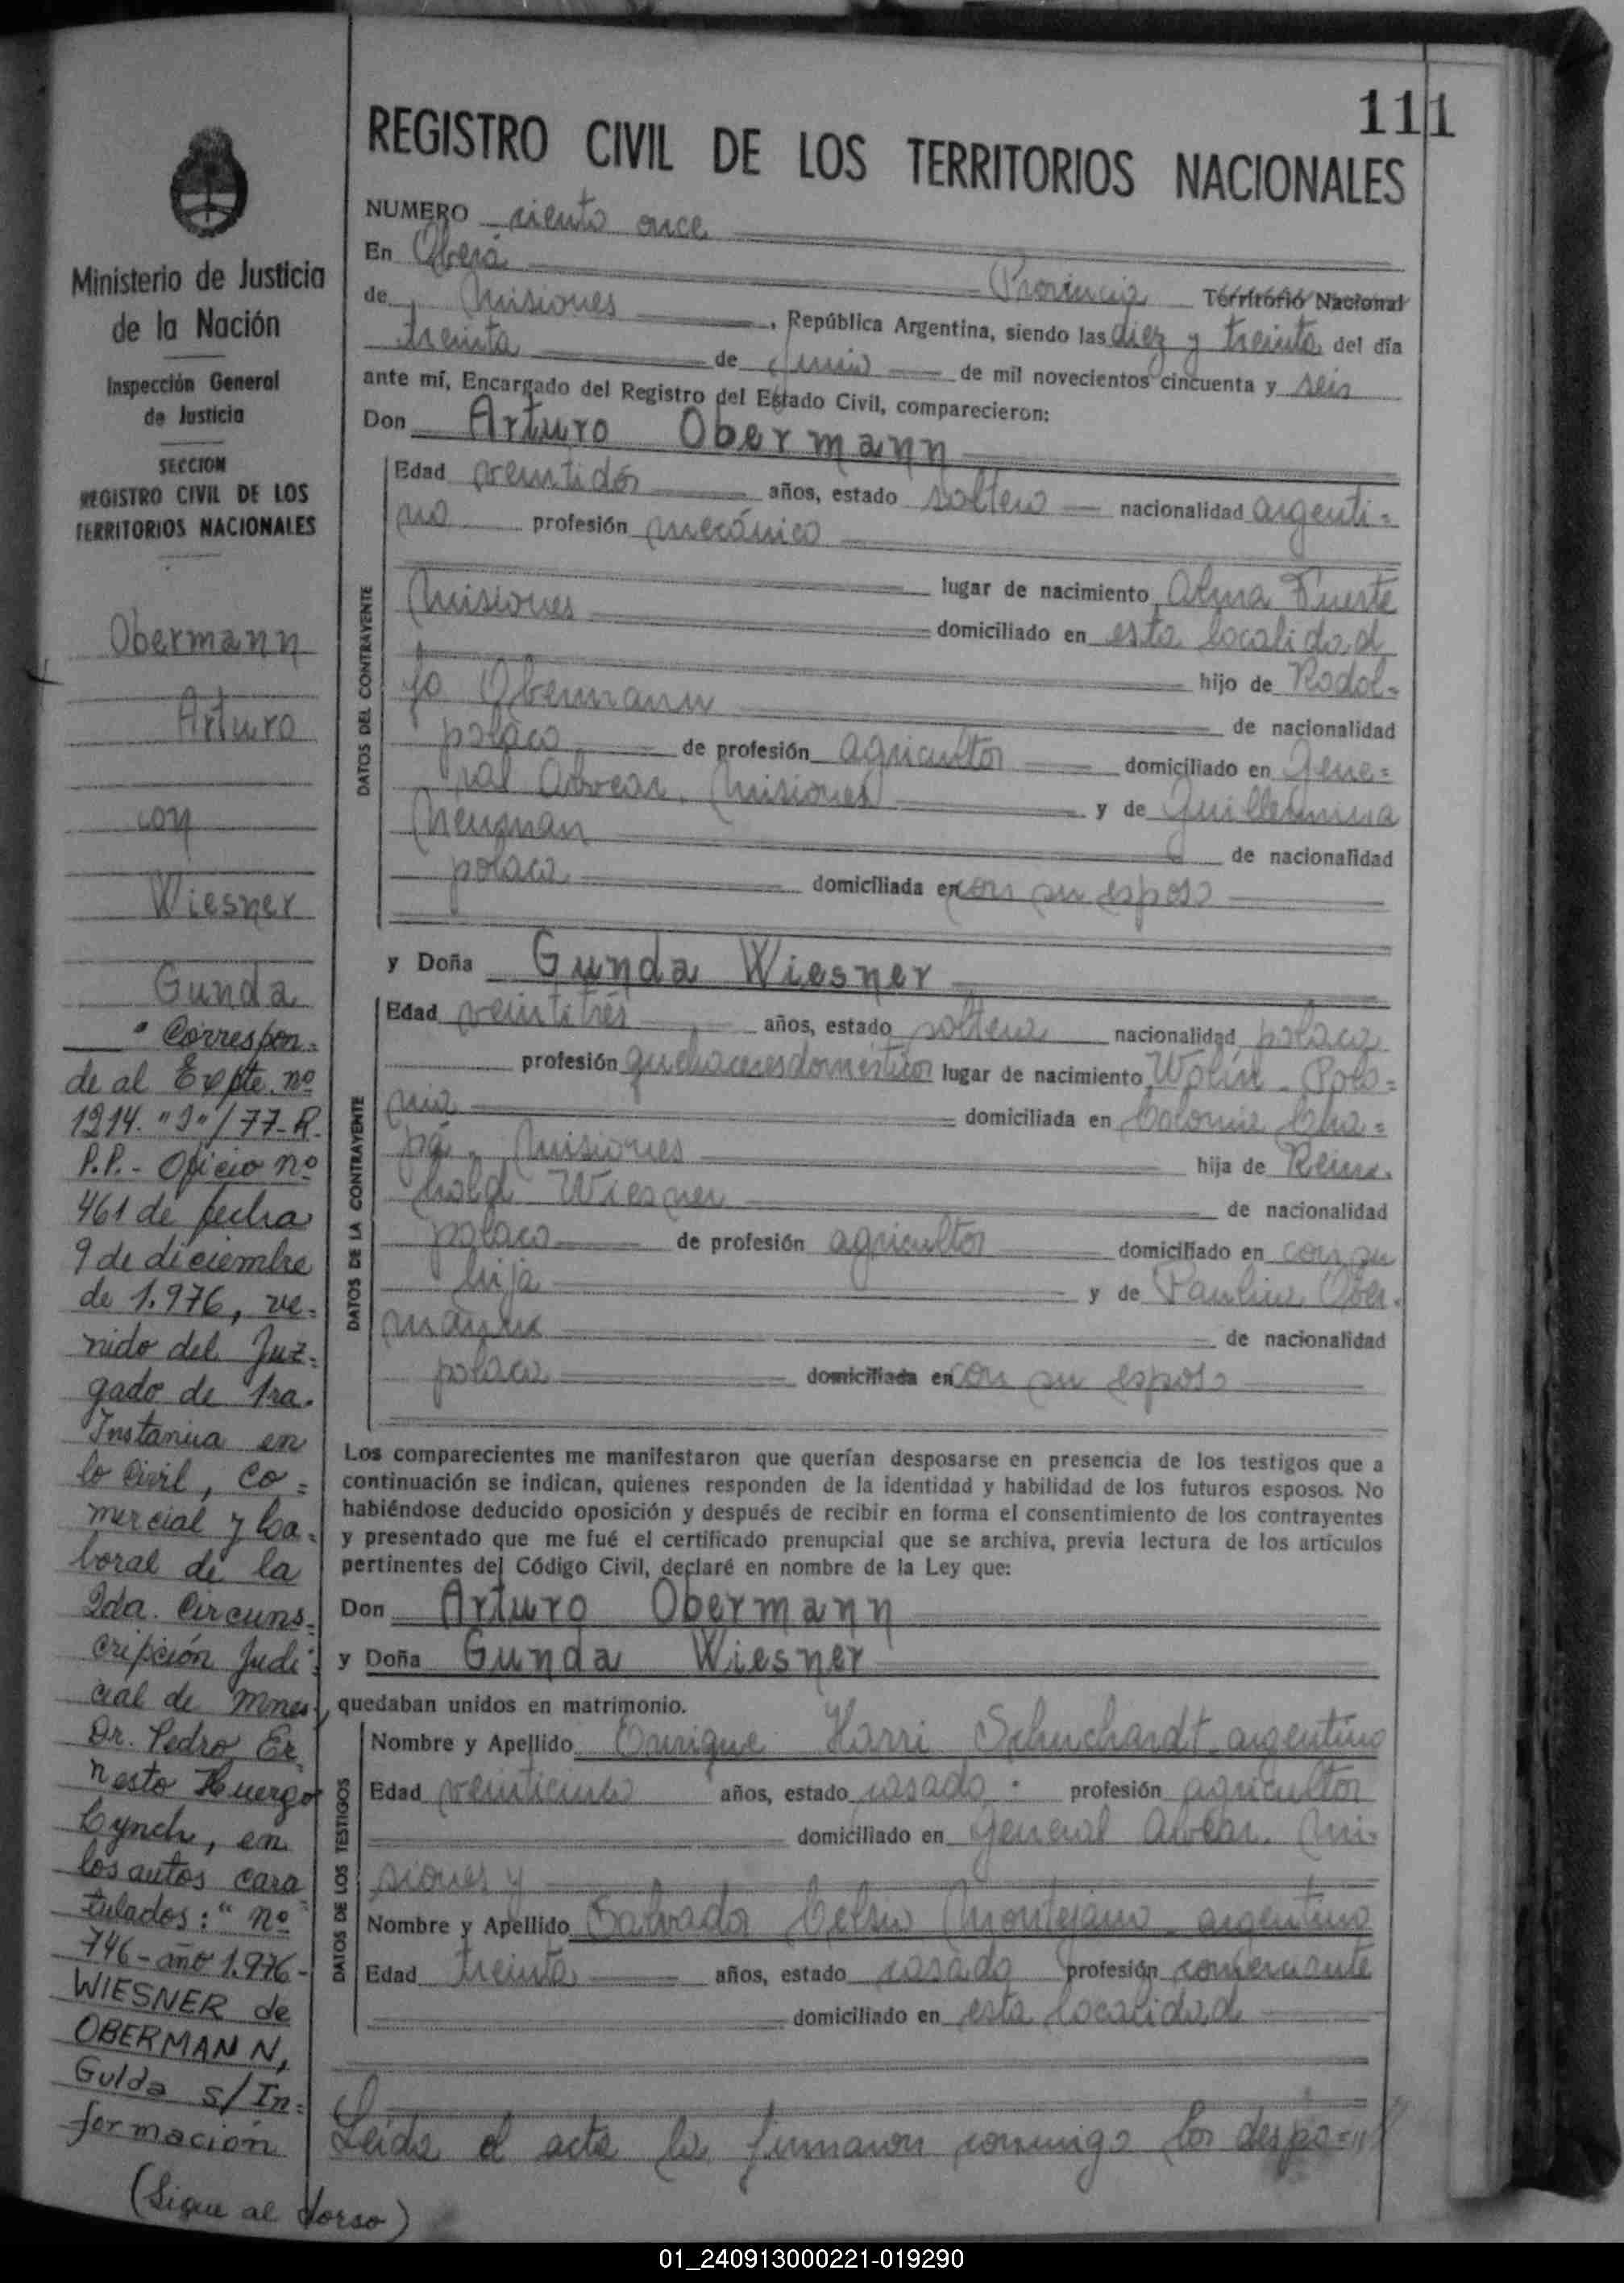 111
REGISTRO CIVIL DE LOS TERRITORIOS NACIONALES
NUMERO ciento once
En Oberá
Provincia Territorio Nacional
de Misiones, República Argentina, siendo las diez y treinta del día
treinta de junio de mil novecientos cincuenta y seis
ante mí, Encargado del Registro del Estado Civil, comparecieron:
Don Arturo Obermann
DATOS DEL CONTRAYENTE
Edad veintidós años, estado soltero nacionalidad argenti=
no profesión mecánico
lugar de nacimiento Alma Fuerte
Misiones domiciliado en esta localidad
hijo de Rodol=
fo Obermann de nacionalidad
polaco de profesión agricultor domiciliado en Gene=
ral Alvear. Misiones y de Guillermina
de nacionalidad
polaca domiciliada en con su esposo
y Doña Gunda Wiesner
DATOS DE LA CONTRAYENTE
Edad veintitrés años, estado soltera nacionalidad polaca
profesión quehaceres domésticos lugar de nacimiento Wolín - Polo=
nia domiciliada en Colonia Cha=
pá - Misiones hija de Rein=
hold Wiesner de nacionalidad
polaco de profesión agricultor domiciliado en con su
hija y de Paulina Ober=
mann de nacionalidad
polaca domiciliada en con su esposo
Los comparecientes me manifestaron que querían desposarse en presencia de los testigos que a
continuación se indican, quienes responden de la identidad y habilidad de los futuros esposos. No
habiéndose deducido oposición y después de recibir en forma el consentimiento de los contrayentes
y presentado que me fué el certificado prenupcial que se archiva, previa lectura de los artículos
pertinentes del Código Civil, declaré en nombre de la Ley que:
Don Arturo Obermann
y Doña Gunda Wiesner
quedaban unidos en matrimonio.
DATOS DE LOS TESTIGOS
Nombre y Apellido Enrique Harri Schuchardt - argentino
Edad veinticinco años, estado casado. profesión agricultor
domiciliado en General Alvear. Mi=
siones y
Nombre y Apellido Salvador Celsio Montejano - argentino
Edad treinta años, estado casado profesión comerciante
domiciliado en esta localidad
Leida el acta la firmaron conmigo los despo="
Ministerio de Justicia
de la Nación
Inspección General
de Justicia
SECCION
REGISTRO CIVIL DE LOS
TERRITORIOS NACIONALES
Obermann
Arturo
con
Wiesner
Gunda
" Correspon=
de al Expte. nº
1214. "J"/77-R.
P.P.- Oficio nº
461 de fecha
9 de diciembre
de 1.976, ve=
nido del Juz=
gado de 1ra.
Instancia en
lo Civil, Co=
mercial y La=
boral de la
2da. Circuns=
cripción Judi=
cial de Mnes,
Dr. Pedro Er
nesto Huergo
Lynch, en
los autos cara
tulados: "nº
746 - año 1.976 -
WIESNER de
OBERMANN,
Gulda s/In=
formación
(Sigue al dorso)
01_240913000221-019290